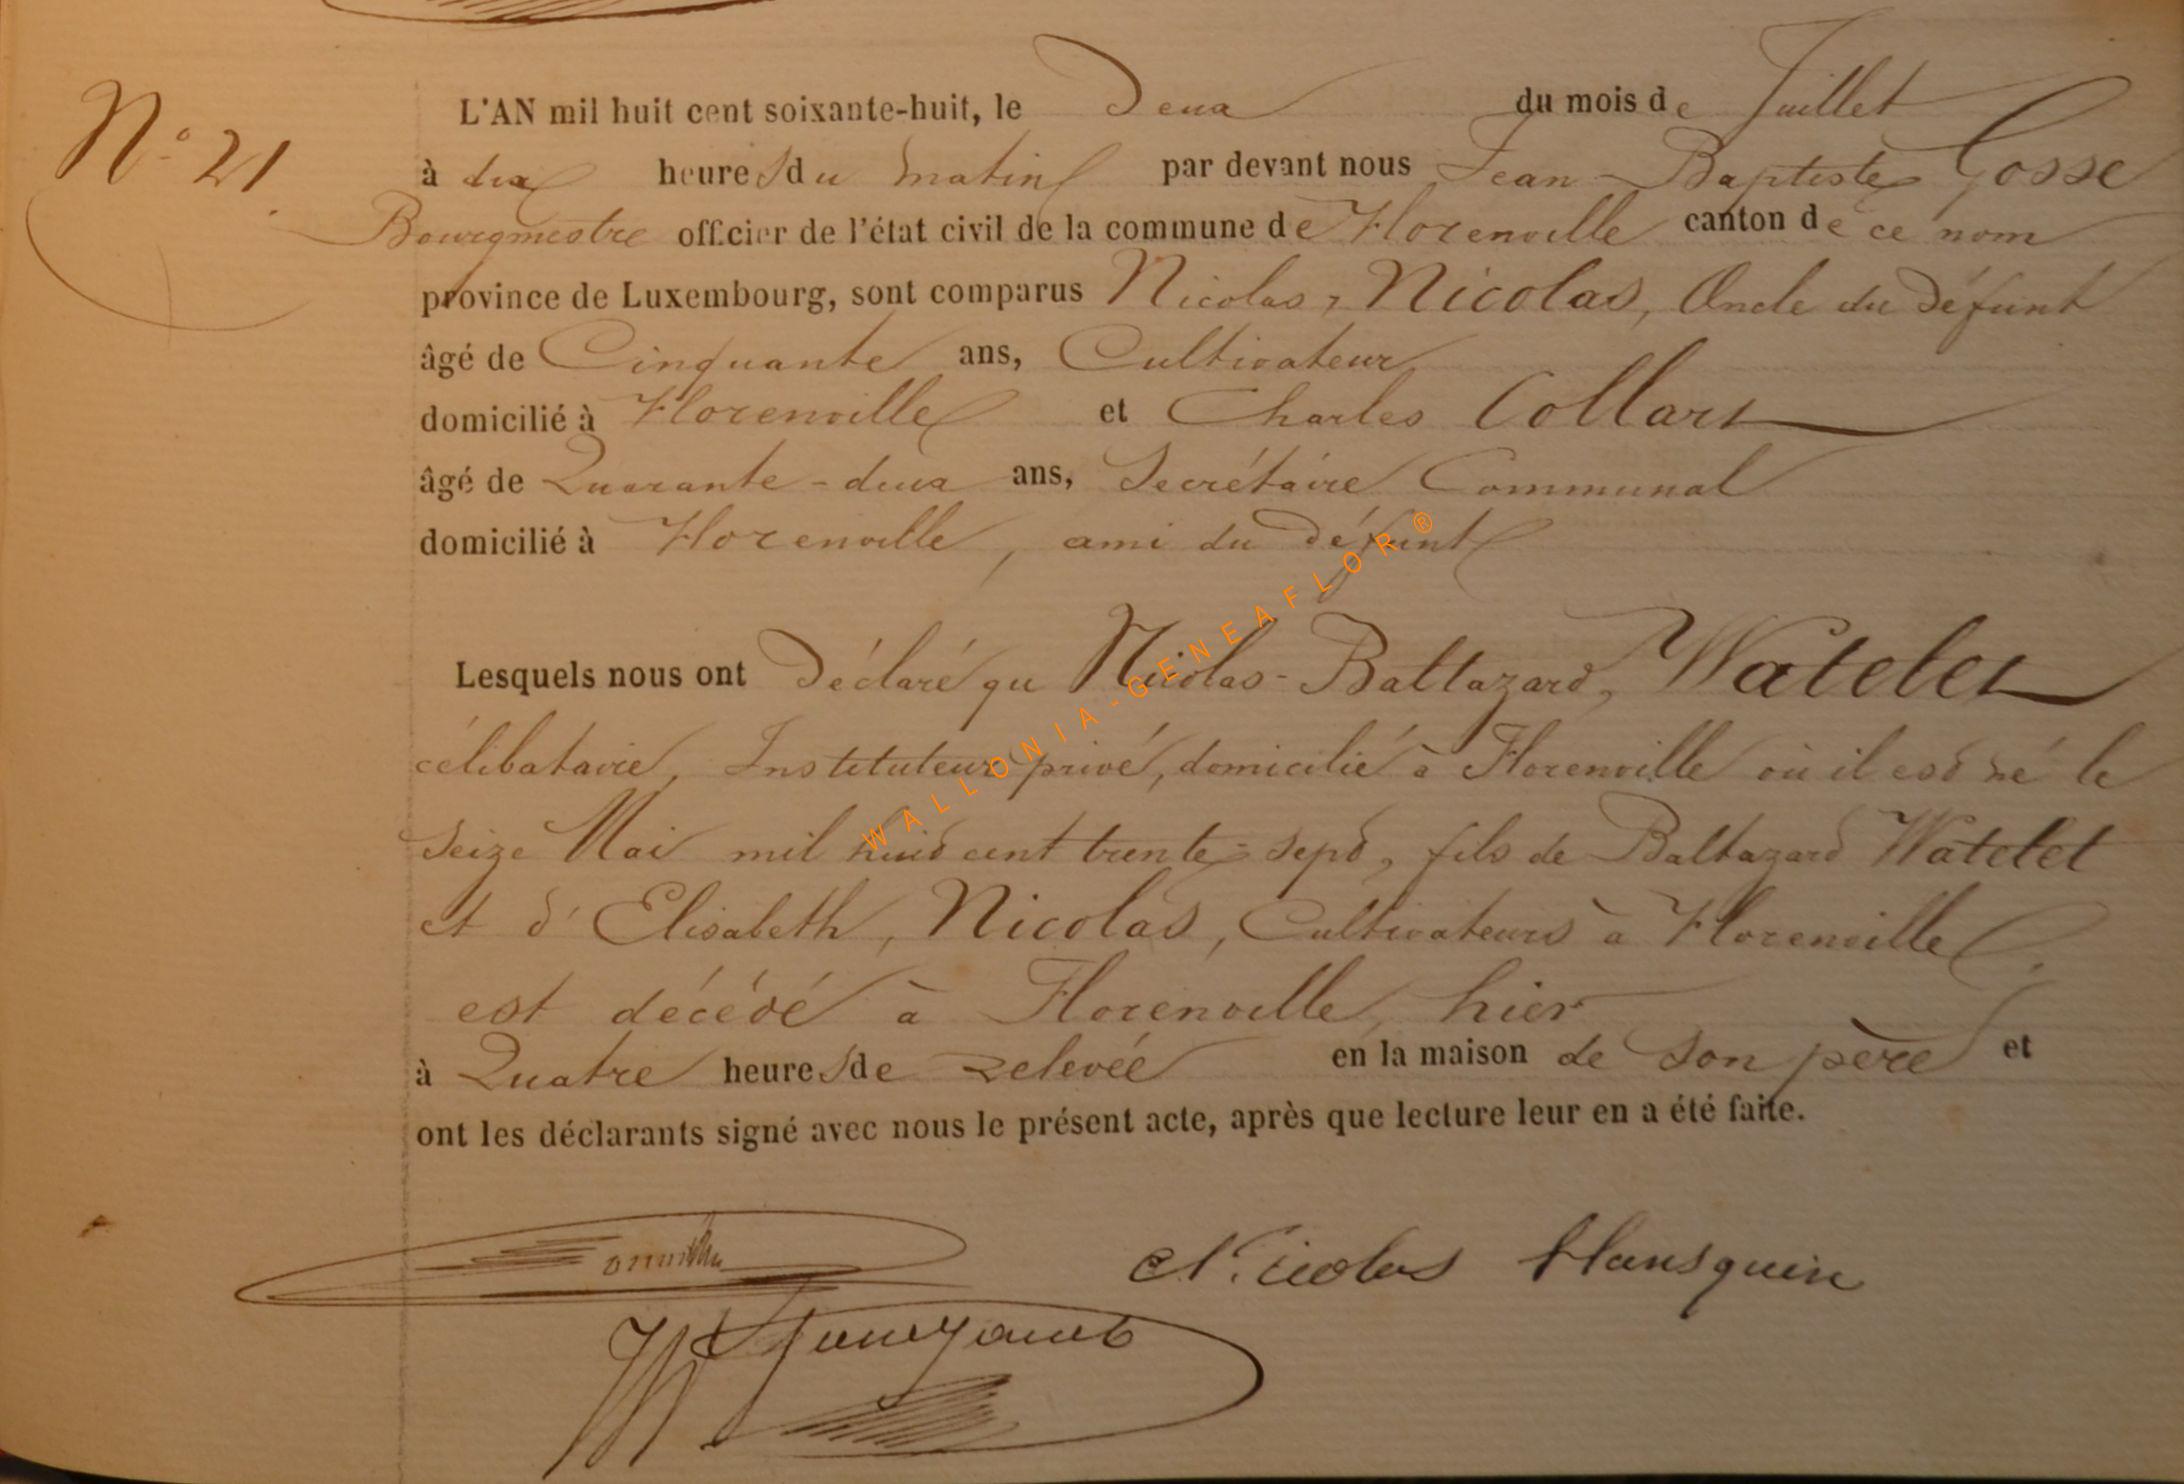 N° 21.
L'AN mil huit cent soixante-huit, le Deux du mois de Juillet
à dix heures du matin par devant nous Jean-Baptiste Gosse
Bourgmestre officier de l'état civil de la commune de Florenville canton de ce nom
province de Luxembourg, sont comparus Nicolas, Nicolas, Oncle du défunt
âgé de Cinquante ans, Cultivateur
domicilié à Florenville et Charles Collart
âgé de Quarante-deux ans, Secrétaire Communal
domicilié à Florenville, ami du défunt
Lesquels nous ont Déclaré qu Nicolas-Baltazard, Watelet
célibataire, Instituteur privé, domicilié à Florenville où il est né le
seize Mai mil huit cent trente-sept, fils de Baltazard Watelet
et d'Elisabeth, Nicolas, Cultivateurs à Florenville,
est décédé à Florenville, hier
à Quatre heures de relevée en la maison de son père et
ont les déclarants signé avec nous le présent acte, après que lecture leur en a été faite.
Nicolas Hansquin
WALLONIA-GENEAFLOR®